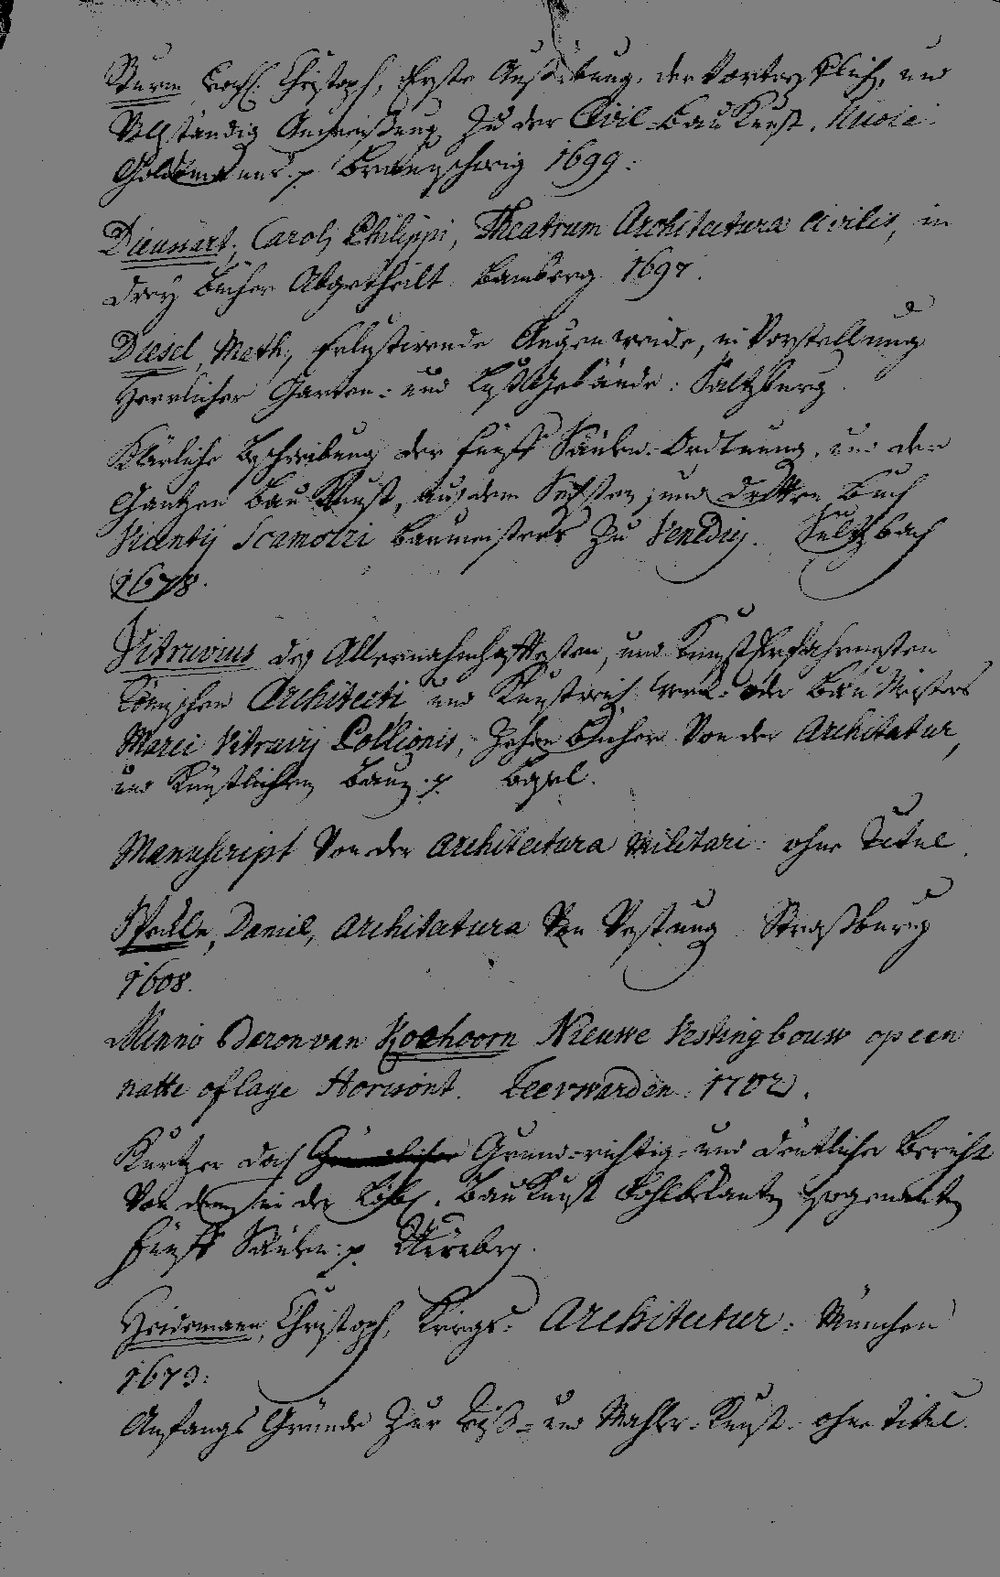 Sturm, Leoh: Christoph, Erste Ausübung, der Vortrefflich, und
Vollständig Anweisung Zu der Civil-Bau Kunst. Nicolai
Goldmanns p. Braunschweig 1699:
Dieussart, Carolj Philippi, Theatrum Architectura Civilis, in
drey Bücher Abgetheilt. Bamberg 1697.
Diesel, Math:, Erlustirende Augenweide, in Vorstellung
Herrlicher Garten- und Lustgebäude: Saltzburg.
Klärliche Beschreibung der fünff Säulen-Ordtnung, und der
Gantzen Bau Kunst, aus dem Sechsten, und Dritten Buch
Vicentij Scamotzi Baumeisters Zu Venedig. Sultzbach
1678.
Vitruvius des Allernahmhafftesten, und Kunst Erfahrnesten
Römischen Architecti und Kunstreich Werk- oder Bau Meisters
Marci Vitruvij Pollionis, Zehen Bücher Von der Architectur,
und Künstlichen Bauen p. Basel.
Manuscript Von der Architectura Militari: ohne Titul.
Speckle, Daniel, Architectura Von Vestung Straßburg
1608.
Minno Baron van Koehoorn Nieuwe Vesting bouw op een
natte of lage Horisont. Leerwarden. 1702.
Kurtzer doch Grund-richtig- und deutlicher Bericht
Von denen in der Löbl. Bau Kunst Wohlbekanten sogenanten
fünff Säulen: p. Nürnberg.
Heidemann, Christoph, Kriegs-Architectur: München
1673:
Anfangs Gründe Zur Reiß- und Mahler-Kunst. ohne Titul.